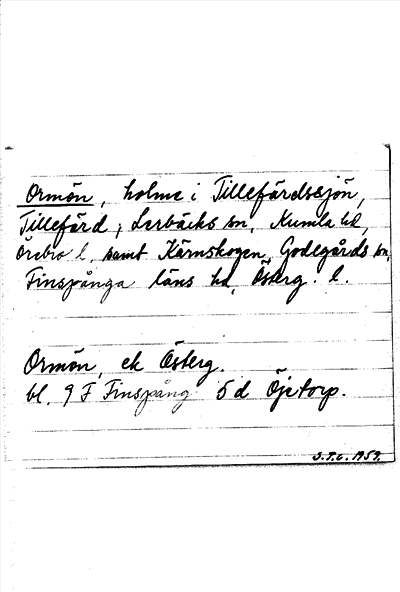 Ormön, holme i Tillefärdssjön,
Tillefärd, Lerbäcks sn, Kumla hd,
Örebro l. samt Kärnskogen, Godegårds sn,
Finspånga läns hd, Österg. l.
Ormön, ek Österg.
bl. 9 F Finspång 5 d Öjetorp.
S.T.C. 1959.